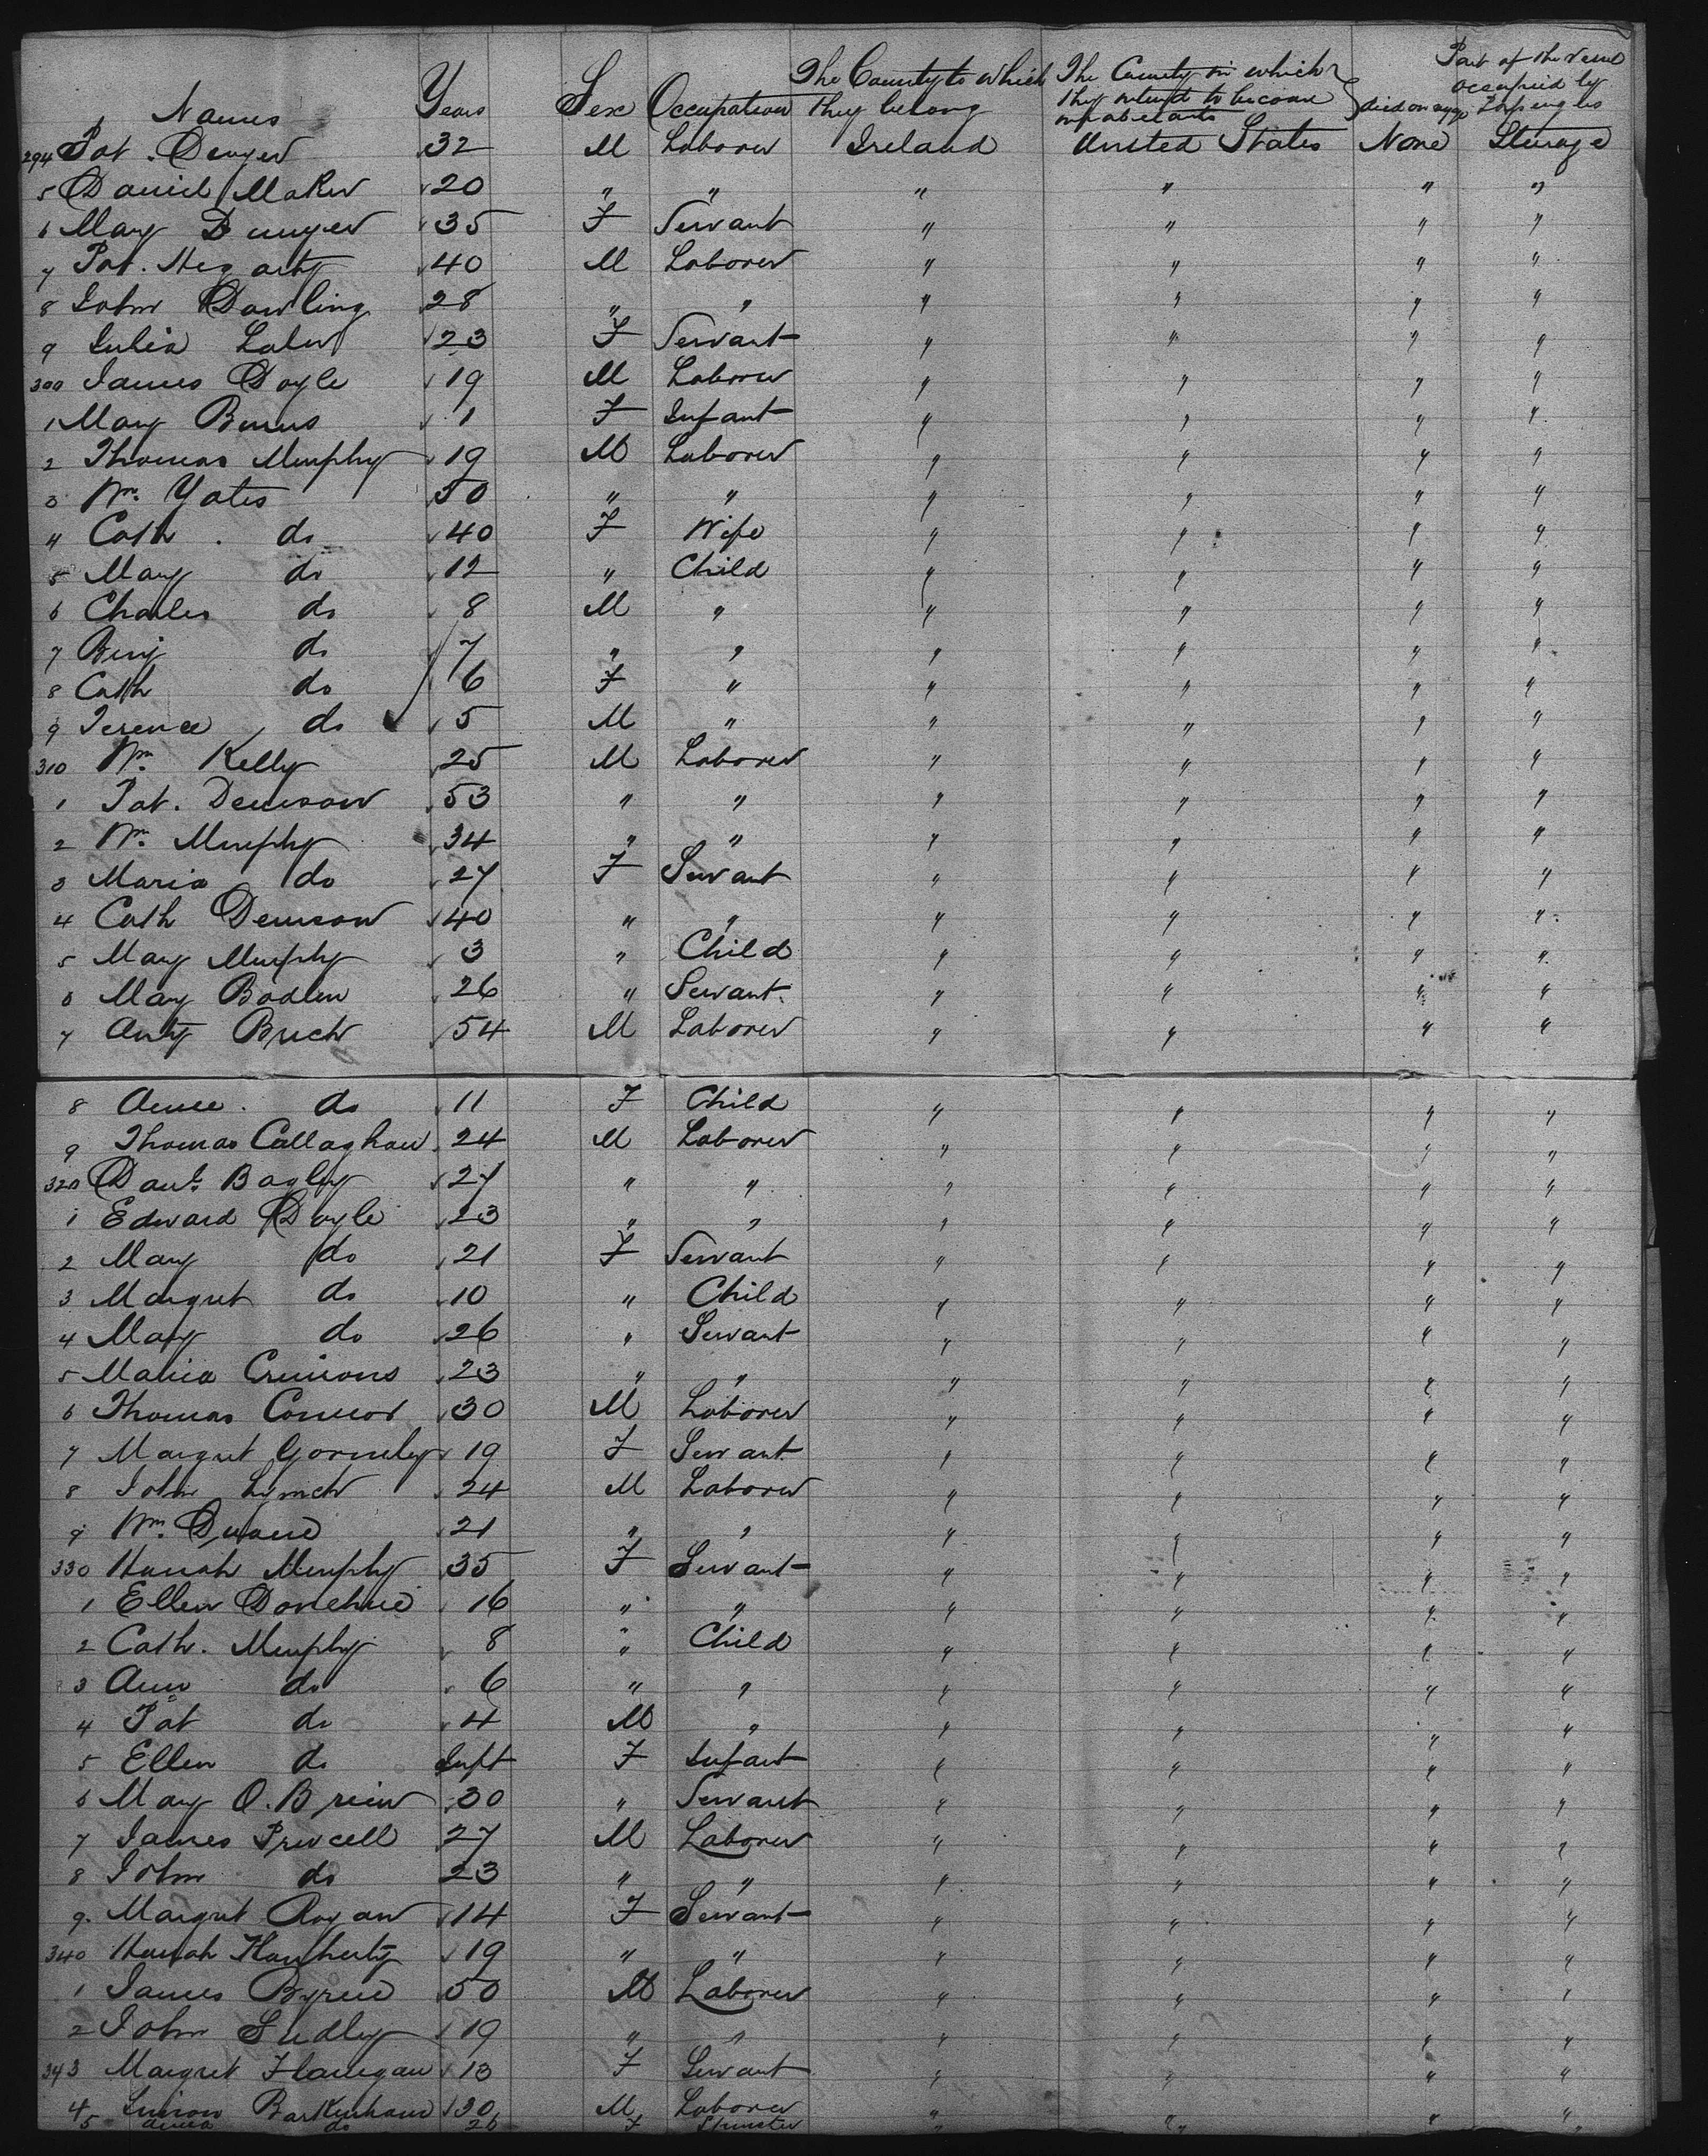 Names Years Sex Occupation The County to which they belong The County in which they intend to become inhabitants died on voyge Part of the Vessel occupied by Passengers
294 Pat. Dwyer 32 M Laborer Ireland United States None Sterage
5 Daniel Maker 20 " " " " " "
6 Mary Dwyer 35 F Servant " " " "
7 Pat. Hegarty 40 M Laborer " " " "
8 John Dowling 28 " " " " " "
9 Julia Lalor 23 F Servant " " " "
300 James Doyle 19 M Laborer " " " "
1 Mary Burns 1 F Infant " " " "
2 Thomas Murphy 19 M Laborer " " " "
3 Wm. Yates 50 " " " " " "
4 Cath. do 40 F Wife " " " "
5 Mary do 12 " Child " " " "
6 Charles do 8 M " " " " "
7 Benj do 7 " " " " " "
8 Cath do 6 F " " " " "
9 Terence do 5 M " " " " "
310 Wm. Kelly 25 M Laborer " " " "
1 Pat. Denison 53 " " " " " "
2 Wm. Murphy 34 " " " " " "
3 Maria do 27 F Servant " " " "
4 Cath Denison 40 " " " " " "
5 Mary Murphy 3 " Child " " " "
6 Mary Bodlen 26 " Servant " " " "
7 Anty Brich 54 M Laborer " " " "
8 Anne. do 11 F Child " " " "
9 Thomas Callaghan 24 M Laborer " " " "
320 Danl. Bagley 27 " " " " " "
1 Edward Doyle 23 " " " " " "
2 Mary do 21 F Servant " " " "
3 Margret do 10 " Child " " " "
4 Mary do 26 " Servant " " " "
5 Maria Crimons 23 " " " " " "
6 Thomas Connor 30 M Laborer " " " "
7 Margret Gormley 19 F Servant " " " "
8 John Lynch 24 M Laborer " " " "
9 Wm. Duane 21 " " " " " "
330 Hanah Murphy 35 F Servant " " " "
1 Ellen Donehue 16 " " " " " "
2 Cath. Murphy 8 " Child " " " "
3 Ann do 6 " " " " " "
4 Pat do 4 M " " " " "
5 Ellen do Inft F Infant " " " "
6 Mary O. Brien 30 " Servant " " " "
7 James Prucell 27 M Laborer " " " "
8 John do 23 " " " " " "
9. Margret Rogan 14 F Servant " " " "
340 Hanah 19 " " " " " "
1 James Byrne 50 M Laborer " " " "
2 John Sudley 19 " " " " " "
343 Margret Flanegan 13 F Servant " " " "
4 Barkenham 30 M Laborer " " " "
5 Anna do 26 F Spinster " " " "